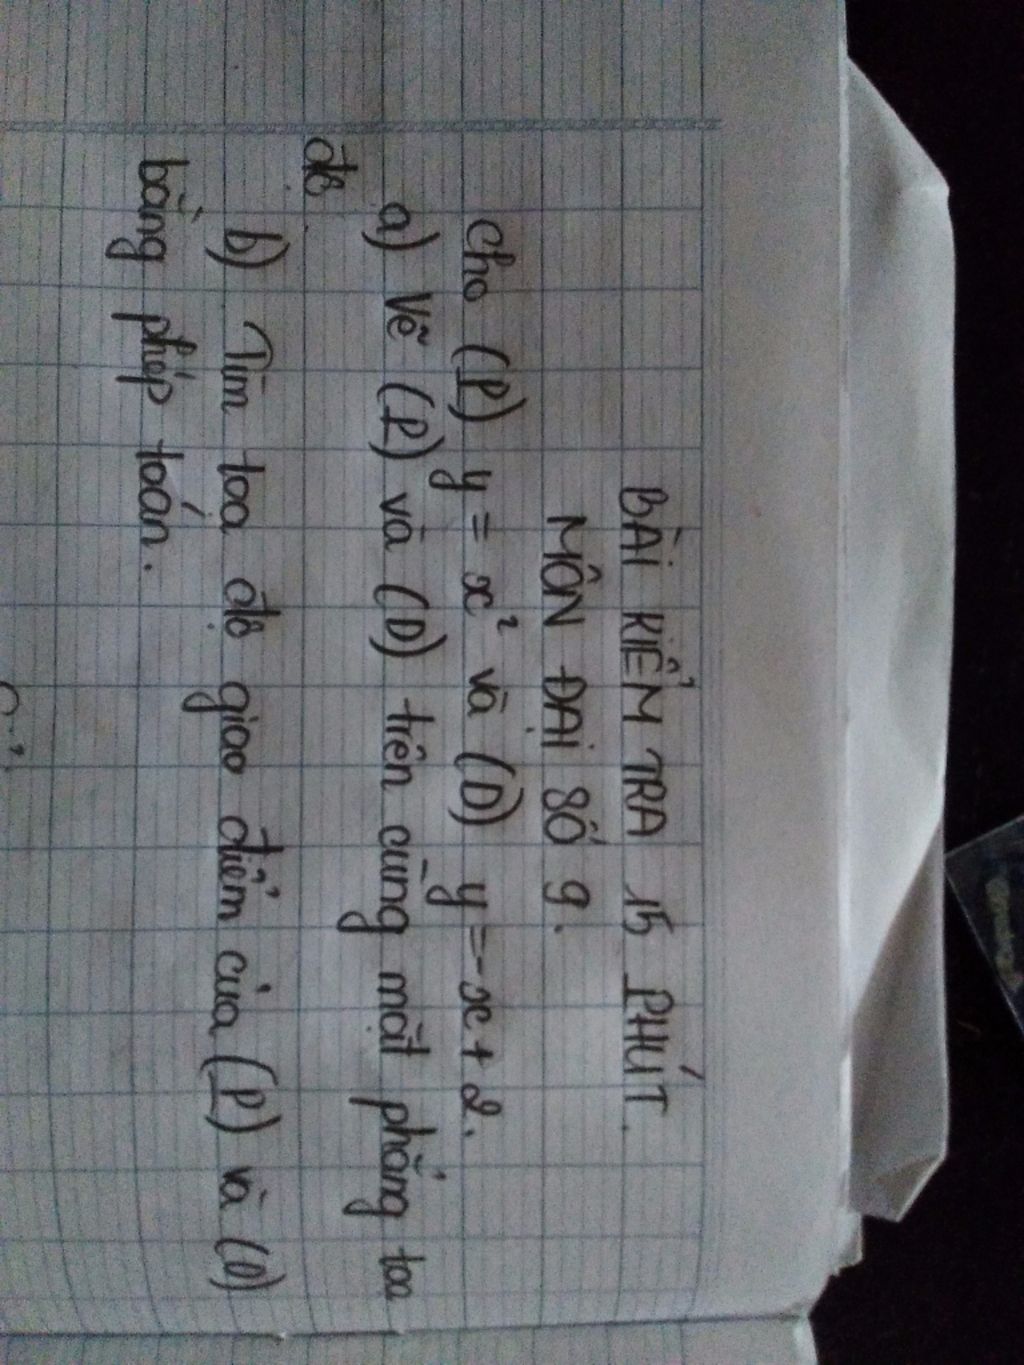 BÀI KIỂM TRA 15 PHÚT.
MÔN ĐẠI SỐ 9.
Cho (P) y = x² và (D) y = -x + 2.
a) Vẽ (P) và (D) trên cùng mặt phẳng toa
độ.
b) Tìm toa độ giao điểm của (P) và (D)
bằng phép toán.